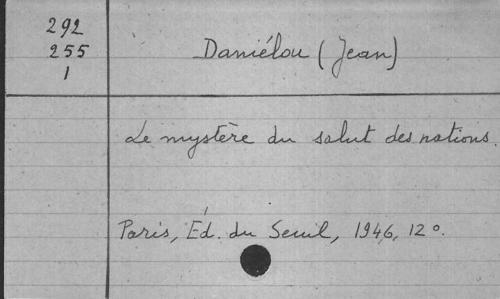 292
255
1
Daniélou (Jean)
Le mystère du salut des nations.
Paris, Éd. du Seuil, 1946, 12°.